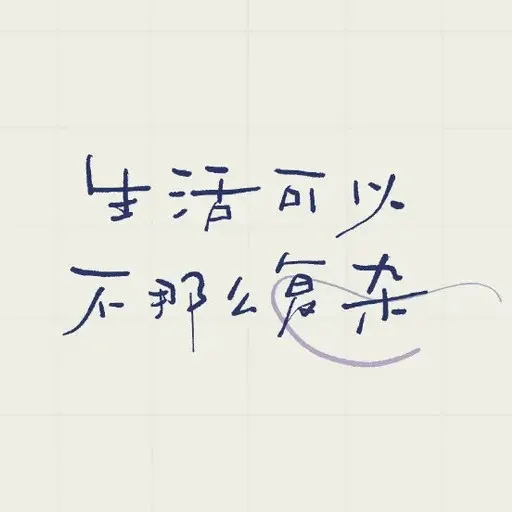 生活可以
不那么复杂